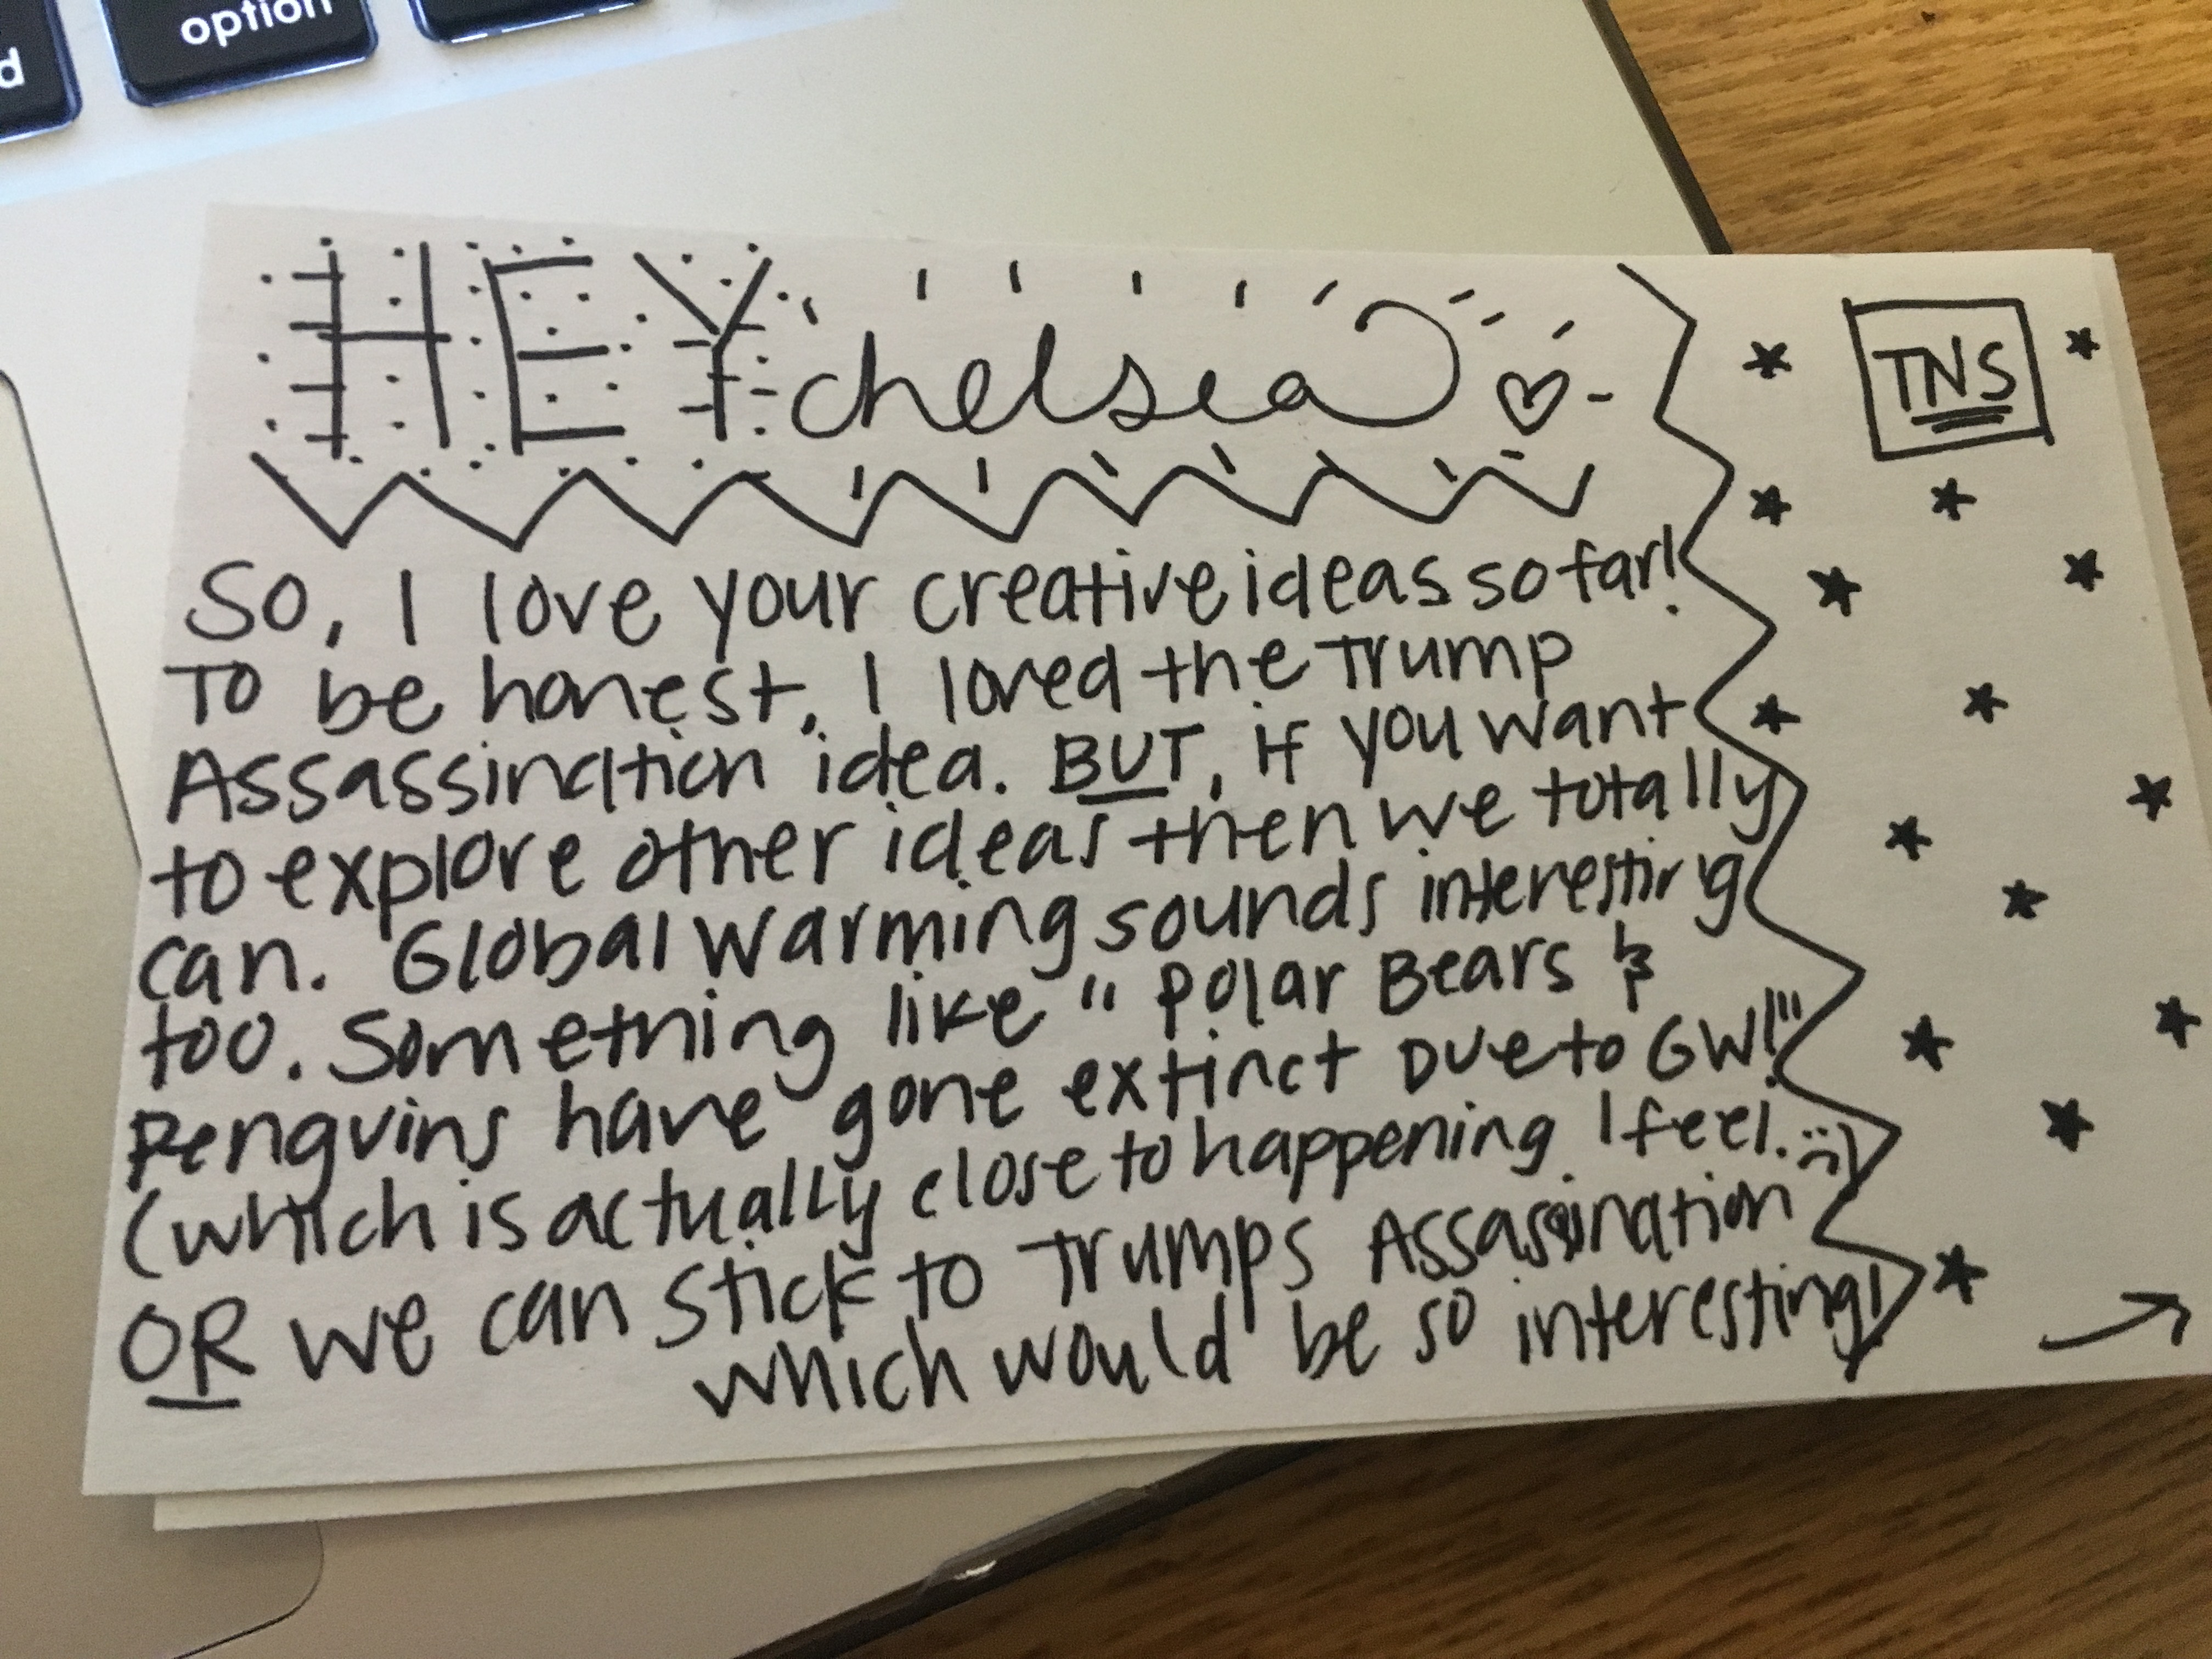 HEY Chelsea
TNS
So, I love your creative ideas so far!
To be honest, I loved the Trump
Assassination idea. BUT, if you want
to explore other ideas then we totally
can. Global Warming sounds interesting
too. Something like "Polar Bears &
Penguins have gone extinct Due to GW!"
(which is actually close to happening I feel. :()
OR we can stick to Trumps Assassination
which would be so interesting!
option